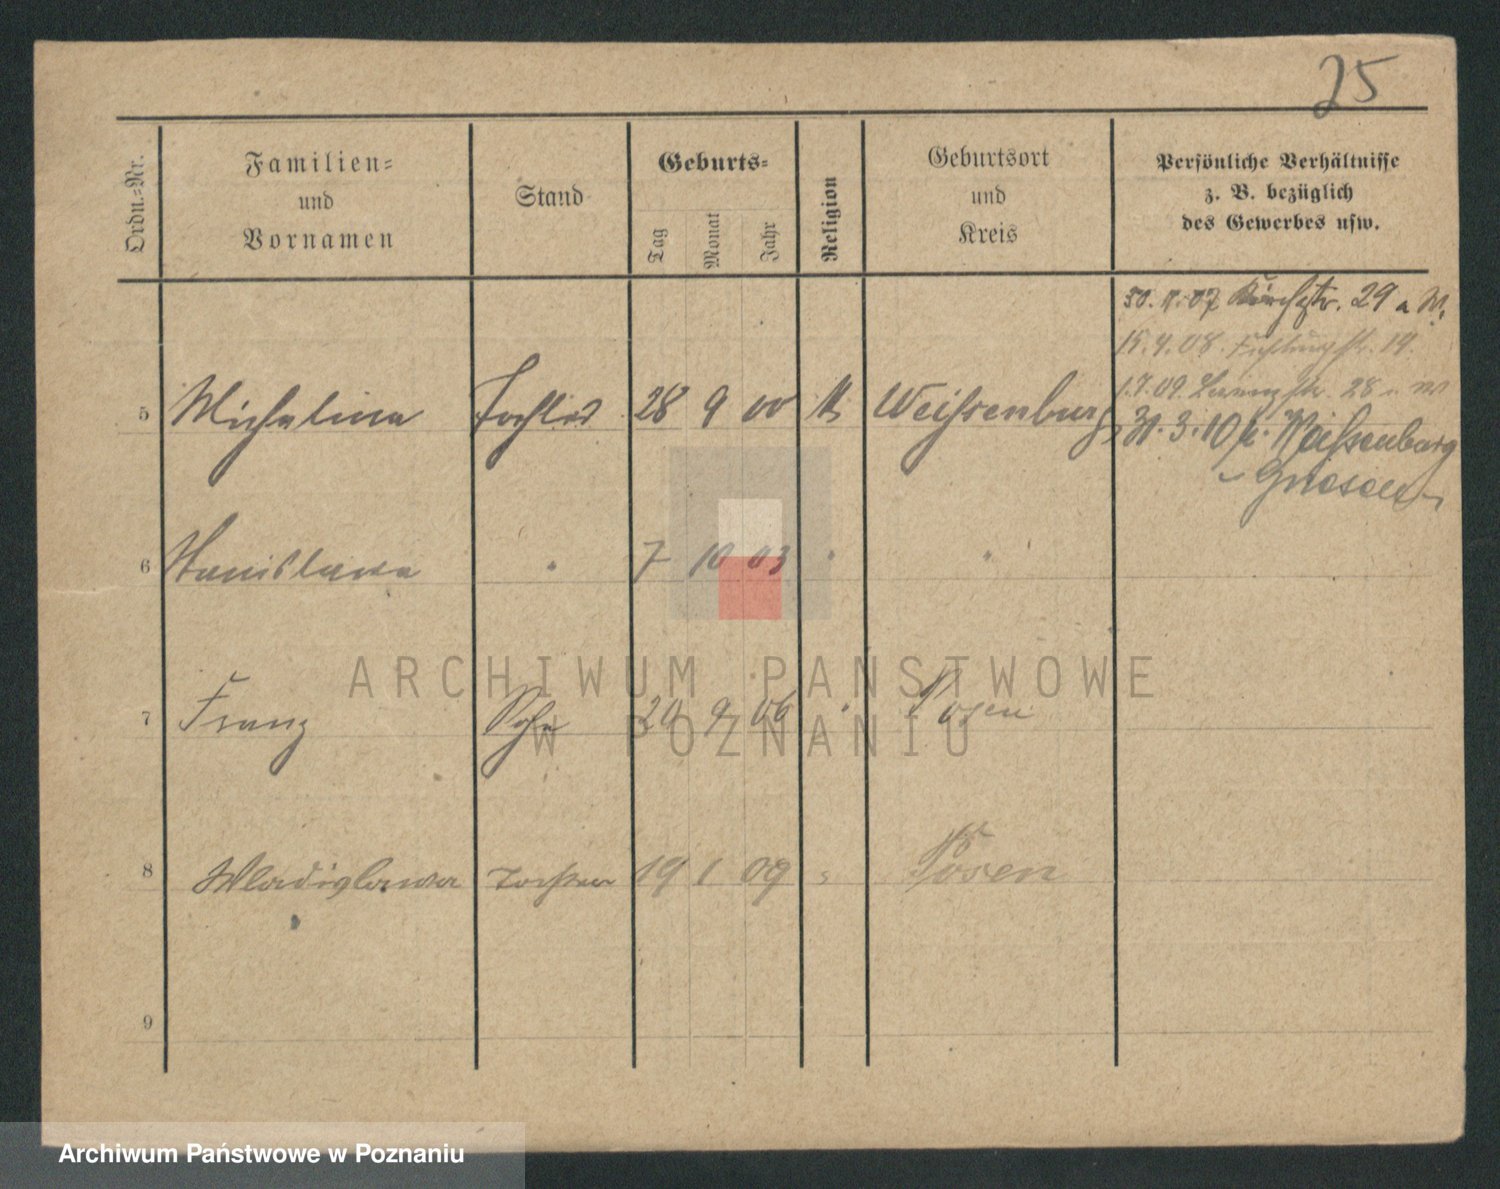 25
Ordn.-Nr.
Familien-
und
Vornamen
Stand
Geburts-
Tag
Monat
Jahr
Religion
Geburtsort
und
Kreis
Persönliche Verhältnisse
z. B. bezüglich
des Gewerbes usw.
30. 11. 07 Kirchstr. 29 a W.
15. 4. 08. str. 19.
1. 7. 09. str. 28
5 Michalina Tochter 28 9 00 Weißenburg
31. 3. 10 Weißenburg
Gnesen
6 Stanislawa " 7 10 03 " "
7 Franz Sohn 20 9 06 " Posen
8 Wladislawa Tochter 19 1 09 " Posen
9
ARCHIWUM PAŃSTWOWE
W POZNANIU
Archiwum Państwowe w Poznaniu